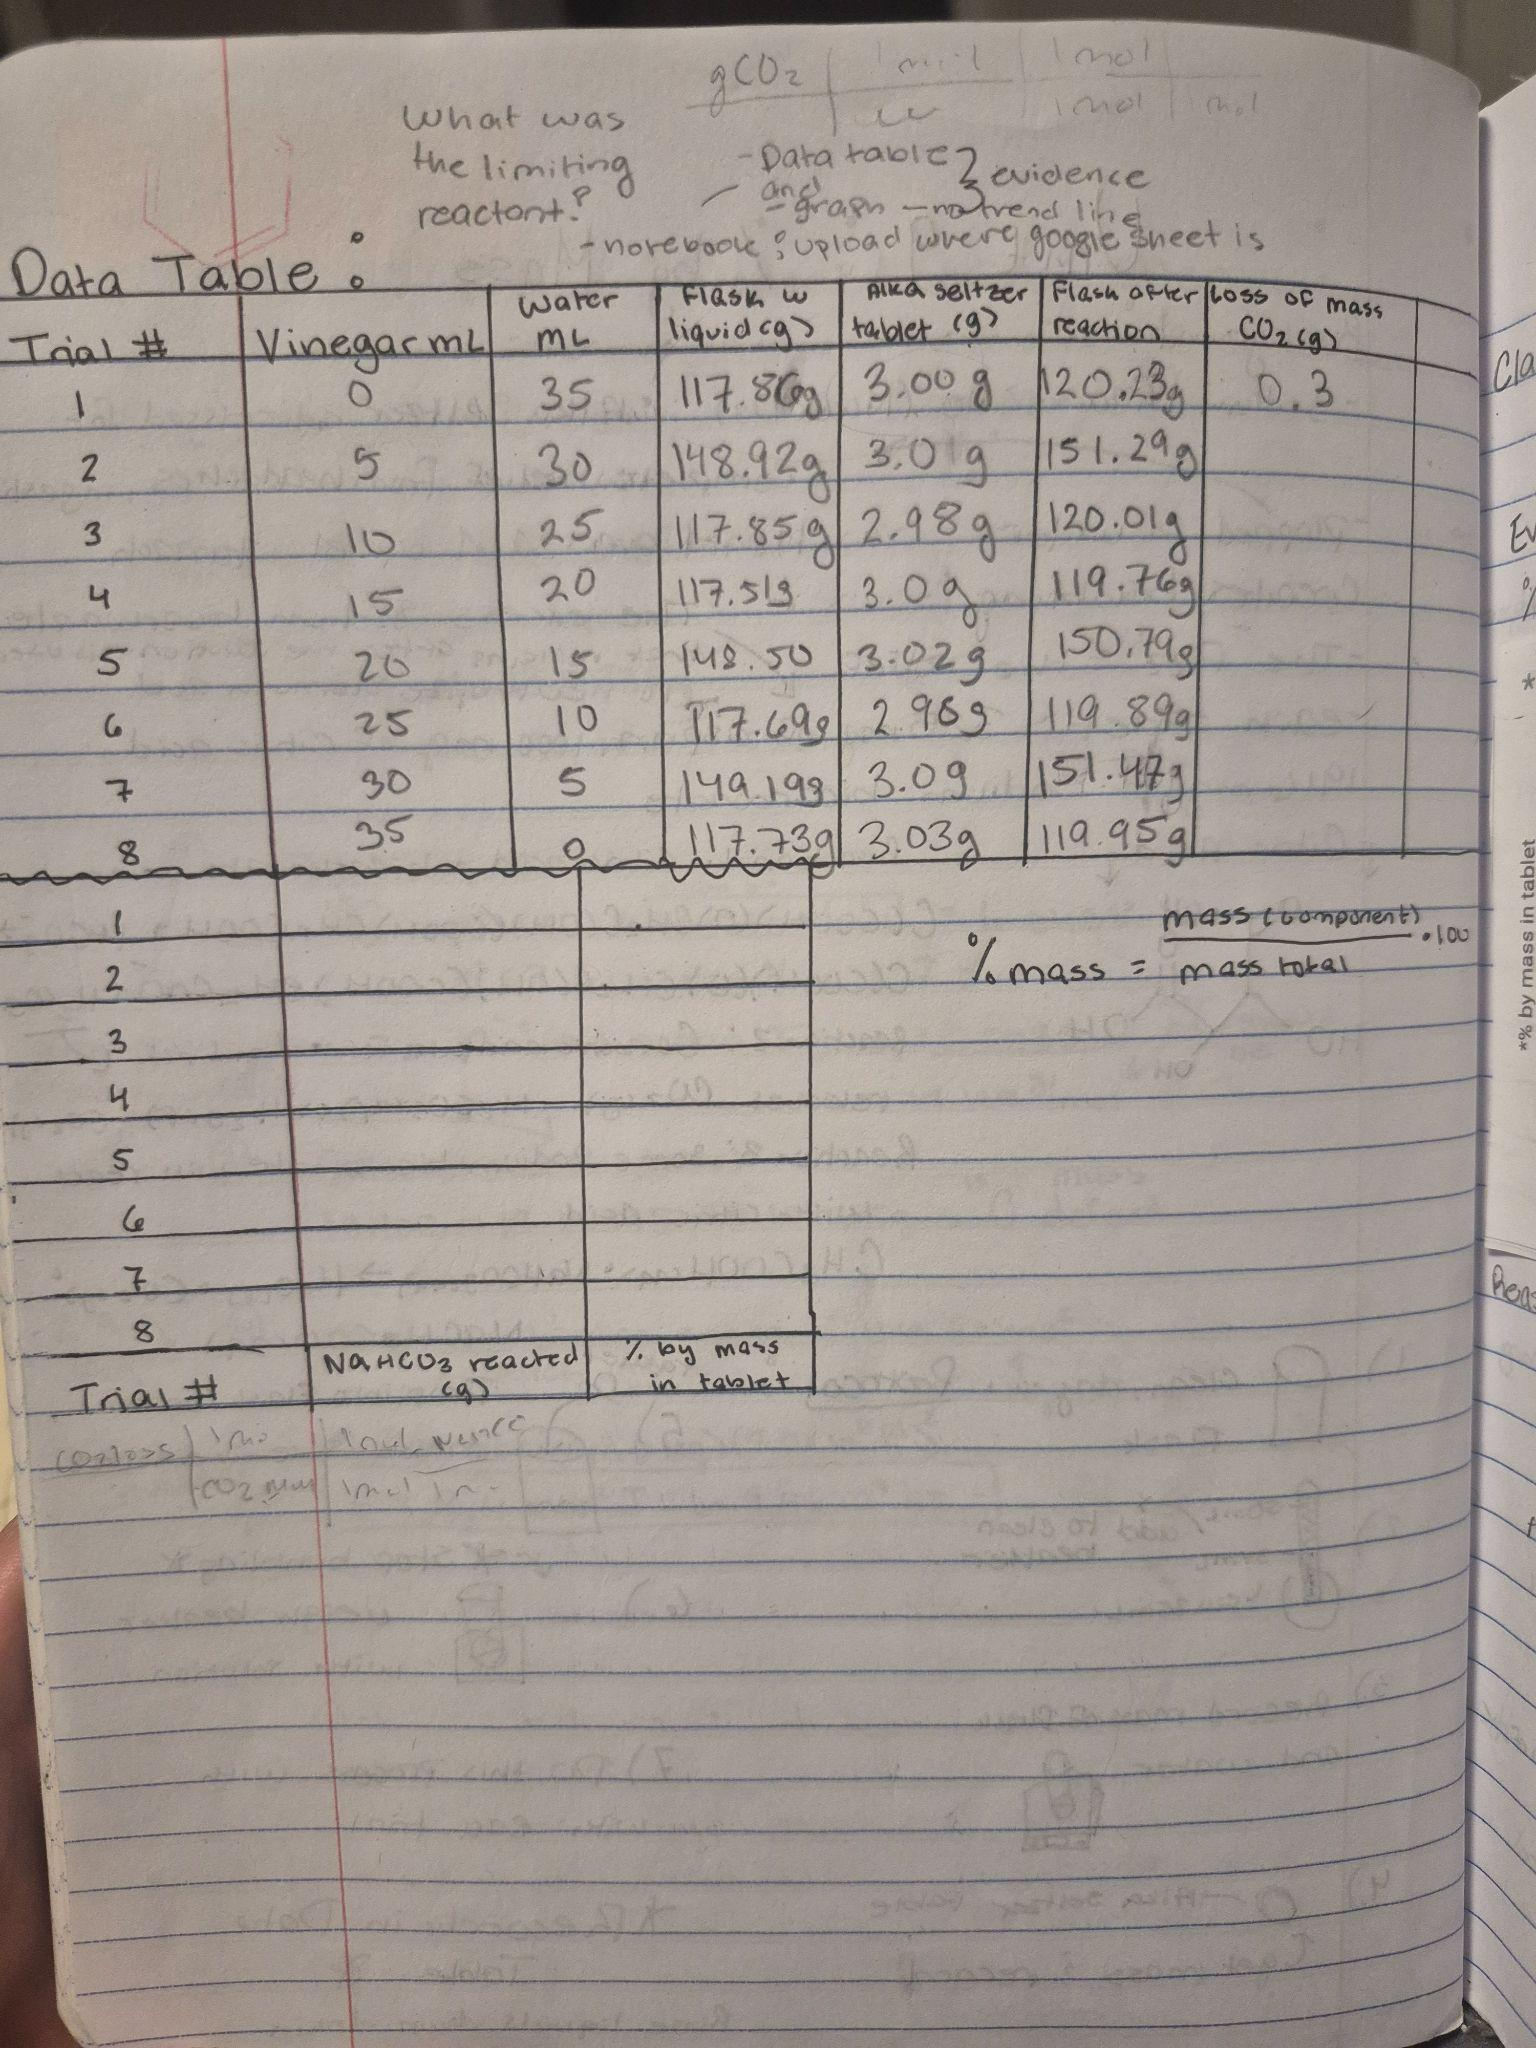 gCO2 | 1 mol | 1 mol
1 mol | 1 mol
What was
the limiting
reactant?
- Data table } evidence
and
- graph - no trend line
- notebook : upload where google sheet is
Data Table :
Trial # | Vinegar mL | Water mL | Flask w liquid (g) | Alka seltzer tablet (g) | Flask after reaction | Loss of mass CO2 (g)
1 | 0 | 35 | 117.86g | 3.00 g | 120.23g | 0.3
2 | 5 | 30 | 148.92g | 3.01g | 151.29g
3 | 10 | 25 | 117.85g | 2.98g | 120.01g
4 | 15 | 20 | 117.51g | 3.0g | 119.76g
5 | 20 | 15 | 148.50 | 3.02g | 150.79g
6 | 25 | 10 | 117.69g | 2.98g | 119.89g
7 | 30 | 5 | 149.19g | 3.0g | 151.47g
8 | 35 | 0 | 117.73g | 3.03g | 119.95g
1
2
3
4
5
6
7
8
Trial # | NaHCO3 reacted (g) | % by mass in tablet
% mass = mass (component) / mass total . 100
CO2 loss | 1 mo
CO2 | 1 mol
Cla
Ev
%
*
*% by mass in tablet
Reas